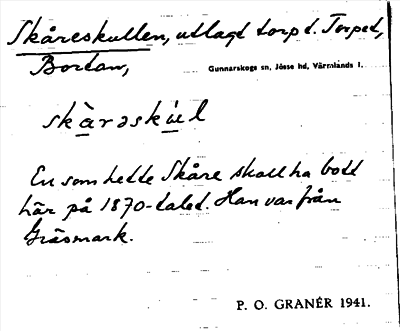 Skåreskullen, utlagt torp t. Torpet,
Bortan,
Gunnarskogs sn, Jösse hd, Värmlands l.
skàrəskúl
En som hette Skåre skall ha bott
här på 1870-talet. Han var från
Gräsmark.
P. O. GRANÉR 1941.